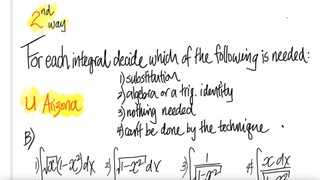 2nd
way
For each integral decide which of the following is needed:
1) substitution
2) algebra or a trig. identity
3) nothing needed
4) can't be done by the technique
U Arizona
B)
1) ∫√x(1-x²)dx 2) ∫√(1-x²) dx 3) ∫ 1/√(1-x²) 4) ∫ x dx/√(1-x²)